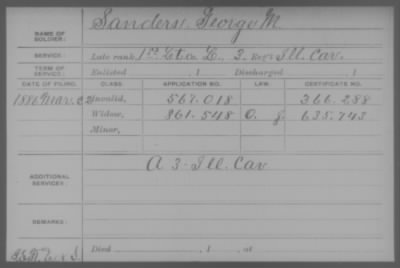 NAME OF SOLDIER: Sanders, George M.
SERVICE: Late rank, 1st Lt Co. L, 3. Reg't Ill. Cav.
TERM OF SERVICE: Enlisted , 1 Discharged , 1
DATE OF FILING. CLASS. APPLICATION NO. LAW. CERTIFICATE NO.
1886 Mar. 22 Invalid, 567.018 366.288
Widow, 861.548 O. J. 635.743
Minor,
ADDITIONAL SERVICES: A 3 - Ill. Cav
REMARKS:
Died , 1 , at